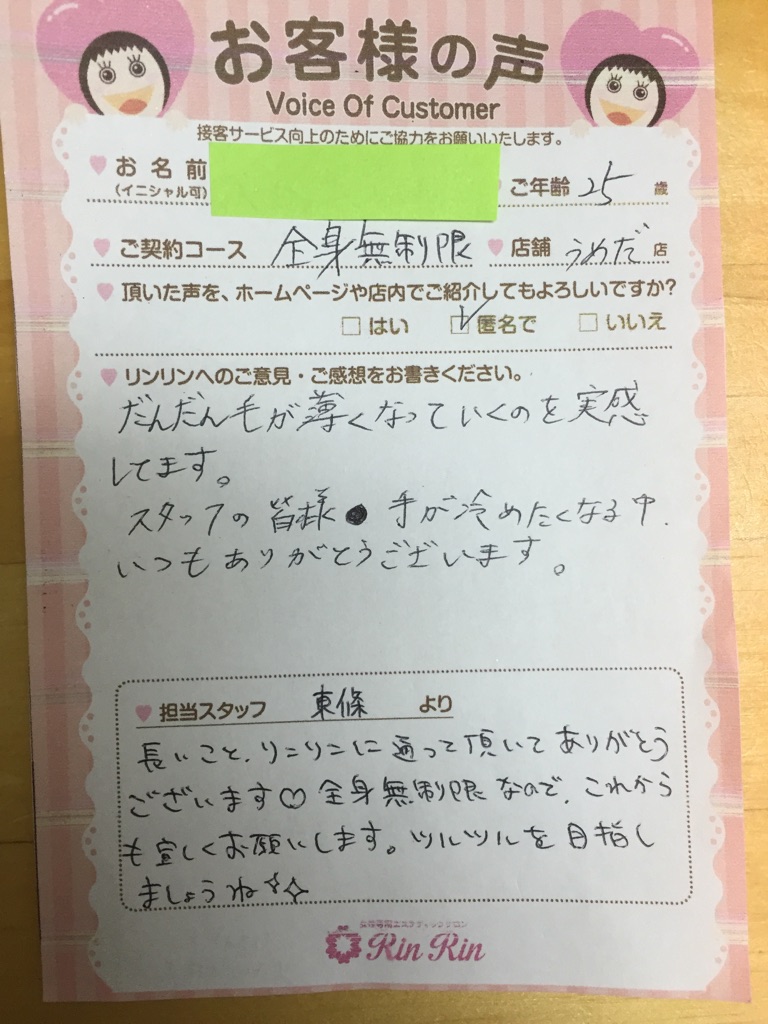 お客様の声
Voice Of Customer
接客サービス向上のためにご協力をお願いいたします。
お名前 (イニシャル可) ご年齢 25 歳
ご契約コース 全身無制限 店舗 うめだ 店
頂いた声を、ホームページや店内でご紹介してもよろしいですか?
はい 匿名で いいえ
リンリンへのご意見・ご感想をお書きください。
だんだん毛が薄くなっていくのを実感
してます。
スタッフの皆様 手が冷めたくなる中、
いつもありがとうございます。
担当スタッフ 東條 より
長いこと、リンリンに通って頂いてありがとう
ございます♡ 全身無制限なので、これから
も宜しくお願いします。ツルツルを目指し
ましょうね✧✧
女性専用エステティックサロン
Rin Rin